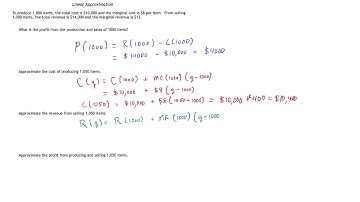 Linear Approximation
To produce 1,000 items, the total cost is $10,000 and the marginal cost is $8 per item. From selling
1,000 items, the total revenue is $14,000 and the marginal revenue is $12.
What is the profit from the production and sales of 1000 items?
P(1000) = R(1000) - C(1000)
= $14000 - $10,000 = $4000
Approximate the cost of producing 1,050 items.
C(q) = C(1000) + MC(1000)(q-1000)
= $10,000 + $8(q-1000)
C(1050) = $10,000 + $8(1050-1000) = $10,000 + $400 = $10,400
Approximate the revenue from selling 1,050 items.
R(q) = R(1000) + MR(1000)(q-1000
Approximate the profit from producing and selling 1,050 items.